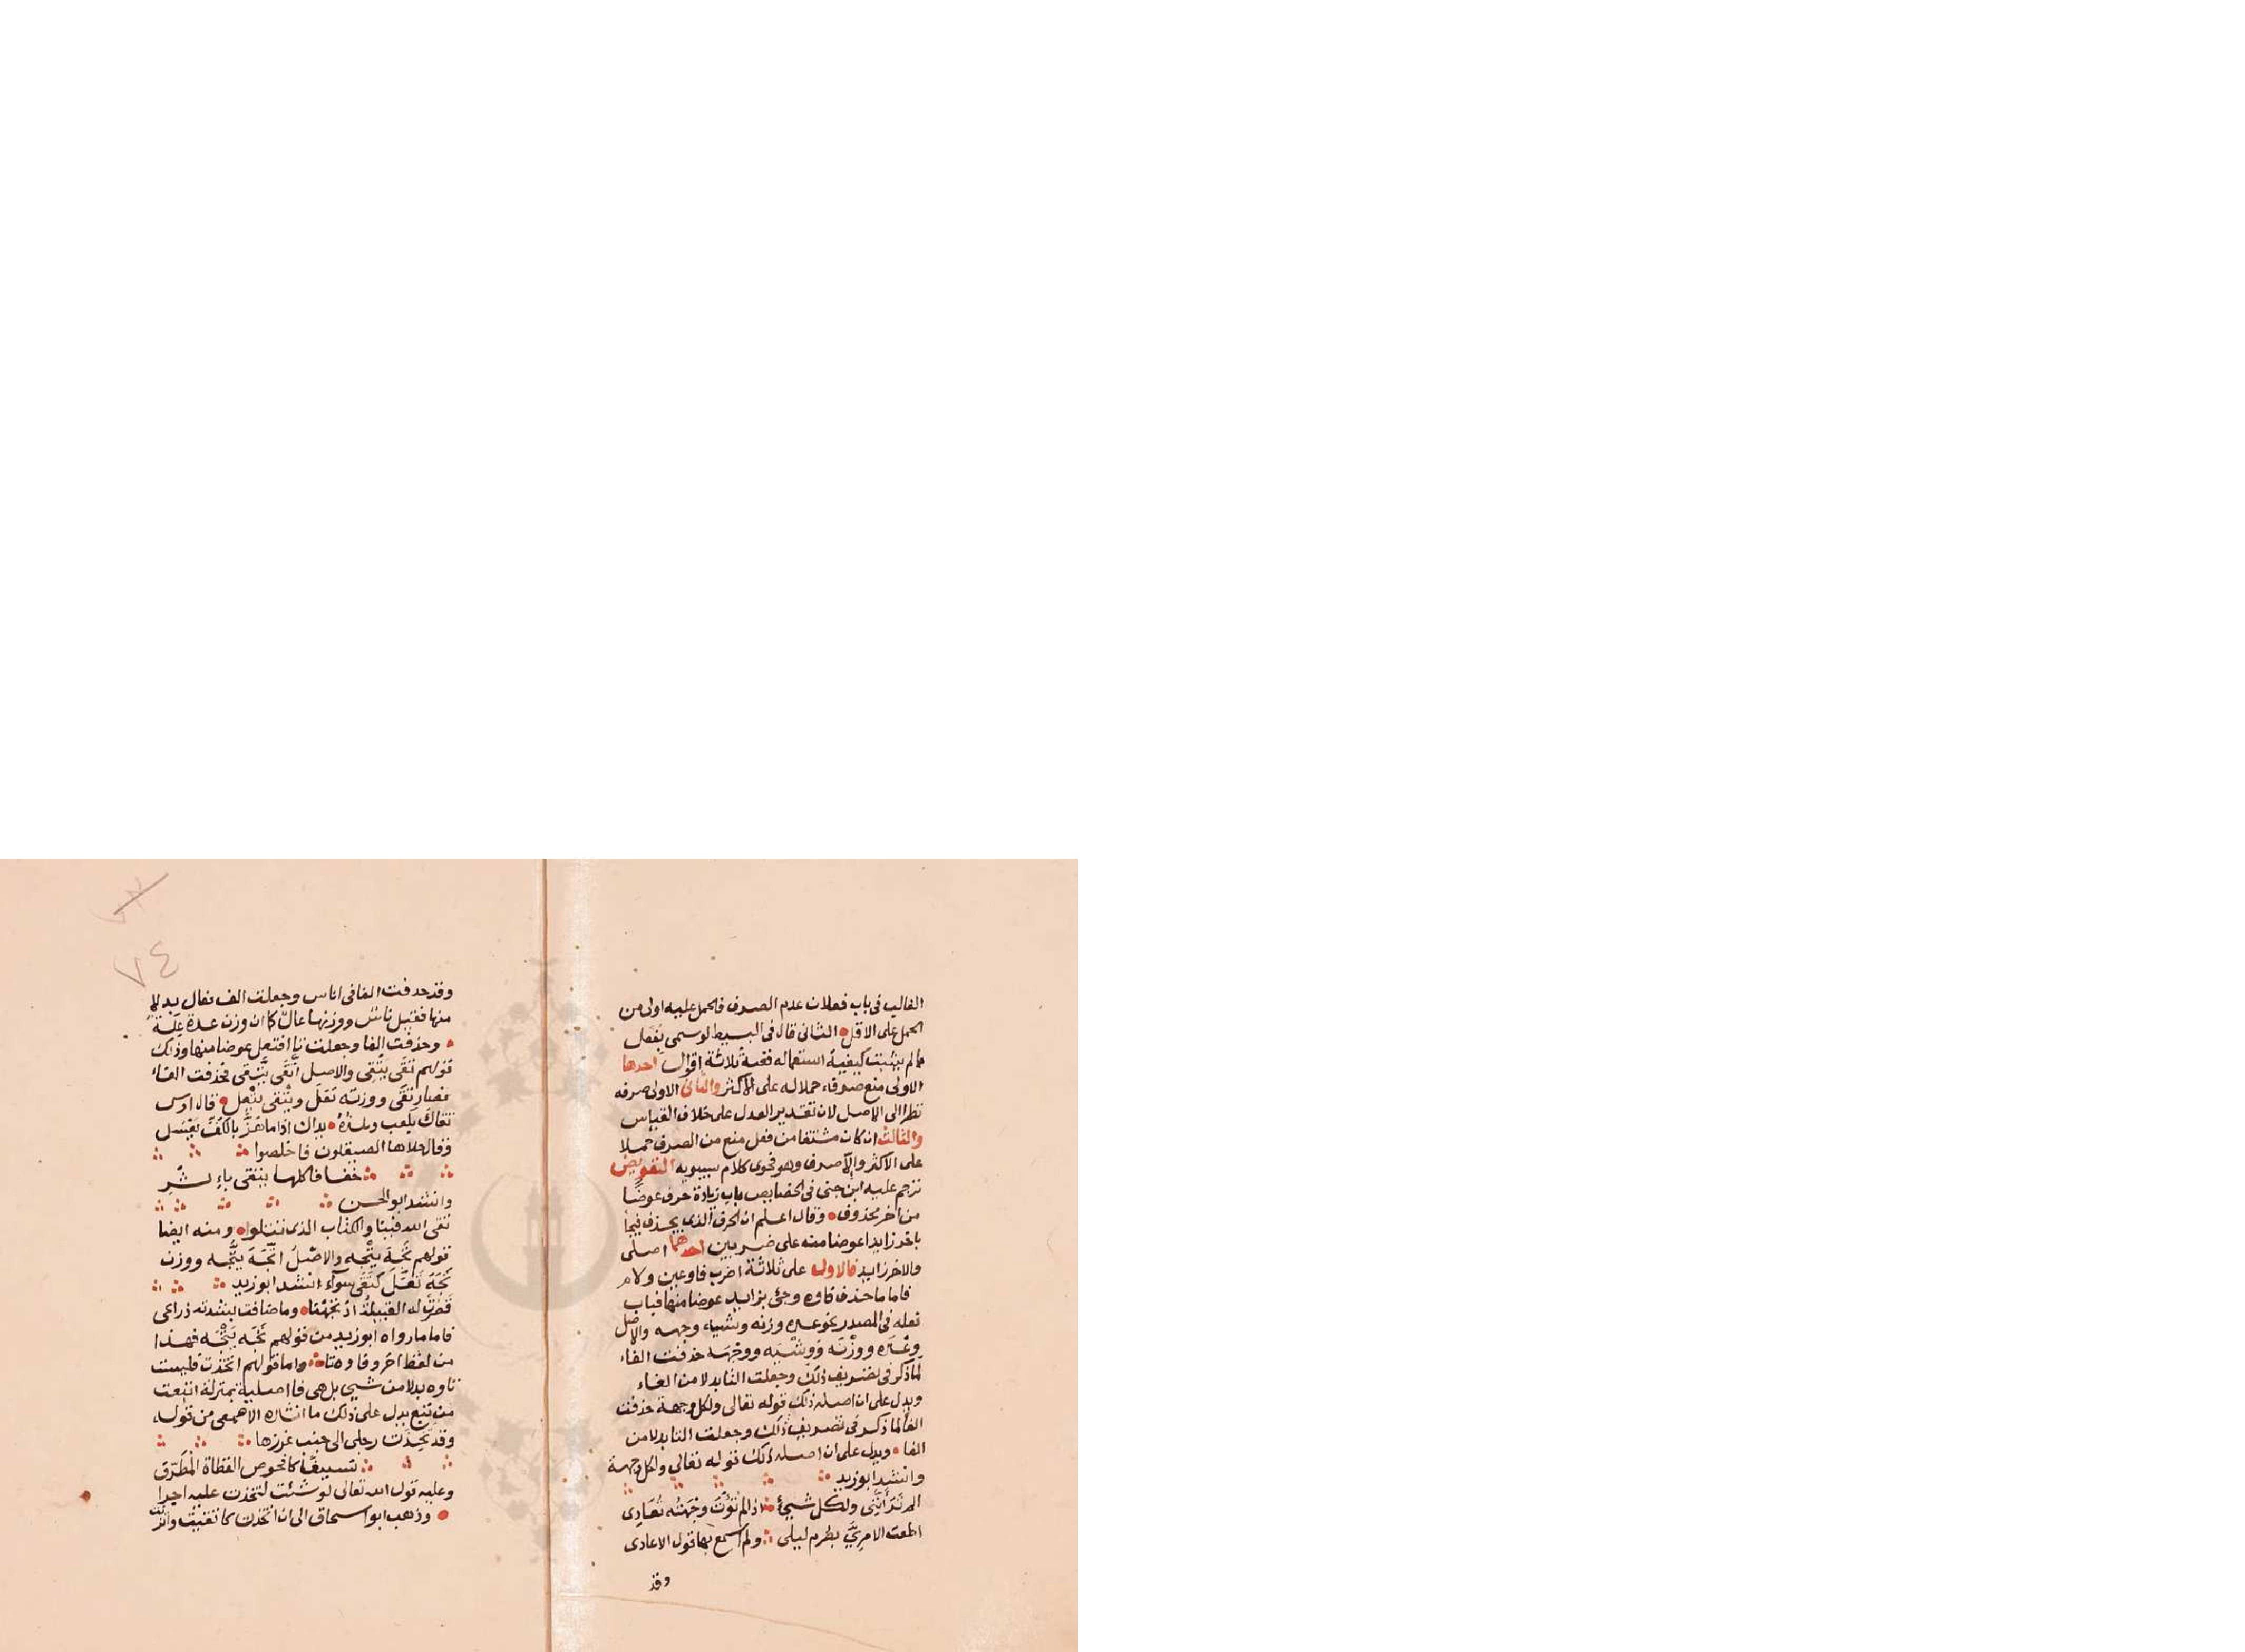 الغالب فى باب فعلان عدم الصرف فالحمل عليه اولى من
الحمل على الاقل الثانى قال فى البسيط لو سمى بفعل
مما لم يثبت كيفية استعماله ففيه ثلاثة اقوال احدها
الاولى منع صرفه حملا له على الاكثر والثانى الاولى صرفه
نظرا الى الاصل لان تقدير العدل على خلاف القياس
والثالث ان كان مشتقا من فعل منع من الصرف حملا
على الاكثر والا صرف وهو فحوى كلام سيبويه التعويض
ترجم عليه ابن جنى فى الخصايص باب زيادة حرف عوضا
من اخر محذوف وقال اعلم ان الحرف الذى يحذف فيجا
باخر زايدا عوضا منه على ضربين احدهما اصلى
والاخر زايد فالاول على ثلاثة اضرب فا وعين ولام
فاما ما حذف فاوه وجئ بزايد عوضا منها فباب
فعله فى المصدر نحو عده وزنه وشيه وجهه والاصل
وعده ووزنه ووشيه ووجهه حذفت الفاء
لما ذكر فى تصريف ذلك وجعلت التا بدلا من الفاء
ويدل على ان اصله ذلك قوله تعالى ولكل وجهة حذفت
الفا لما ذكر فى تصريف ذلك وجعلت التا بدلا من
الفا ويدل على ان اصله ذلك قوله تعالى ولكل وجهة
وانشد ابو زيد
الم تر أننى ولكل شيئ اذا لم تؤت وجهته تعادى
اطعت الامرى بصرم ليلى ولم اسمع بها قول الاعادى
وقد
٧٤
وقد حذفت الفا فى اناس وجعلت الف فعال بدلا
منها فقيل ناس ووزنها عال كما ان وزن عدة علة
وحذفت الفا وجعلت تا افتعل عوضا منها وذلك
قولهم تقى يتقى والاصل اتقى يتقى فحذفت التاء
فصار تقى ووزنه تعل ويتقى يتعل قال اوس
تقاك بكعب وبلذه يداك اذا ما هز بالكف يعسل
وقال جلاها الصيقلون فاخلصوا
خفافا كلها يتقى باثر
وانشد ابو الحسن
تقى الله فينا والكتاب الذى تتلوا ومنه ايضا
قولهم تجه يتجه والاصل اتجه يتجه ووزن
تجه تعل كتقى سواء انشد ابو زيد
قصرت له القبيلة اذ تجهنا وما ضاقت بشدته ذراعى
فاما ما رواه ابو زيد من قولهم تجه يتجه فهذا
من لفظ اخر وفاوه تا واما قولهم اتخذت فليست
تاوه بدلا من شيئ بل هى فا اصلية بمنزلة اتبعت
من تبع يدل على ذلك ما انشده الاصمعى من قوله
وقد تخذت رجلى الى جنب غرزها
نسيفا كافحوص القطاة المطرق
وعليه قول الله تعالى لو شئت لتخذت عليه اجرا
وذهب ابو اسحاق الى ان اتخذت كاتقيت واتزنت